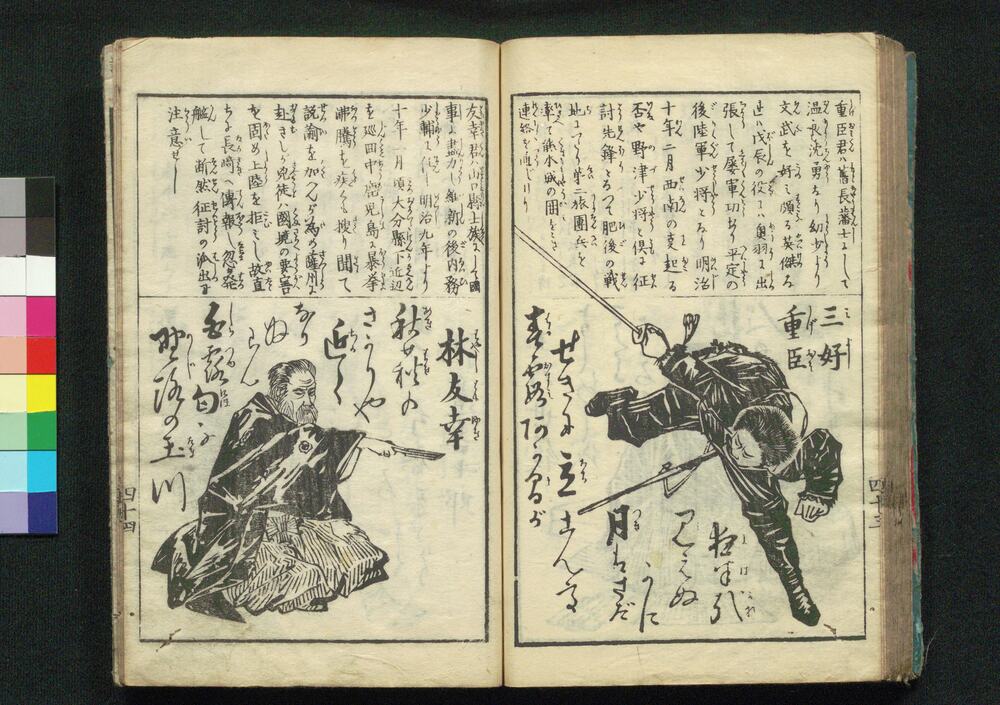 重臣君ハ舊長藩士にして
温良沈勇なり幼少より
文武を好ミ頗る英傑な
り戊辰の役にハ奥羽に出
張して屡軍功あり平定の
後陸軍少将となり明治
十年二月西南の変起る
否や野津少将と倶に征
討先鋒となつて肥後の戦
地にいたり第二旅團兵を
率て熊本城の囲をとき
連絡を通じけり
三好
重臣
四十三
友幸君ハ山口縣士族にして國
事に盡力し維新の後内務
少輔に任し明治九年より
十年一月頃大分縣下近辺
を巡回中鹿児島に暴挙
沸騰を疾くも搜り聞て
説諭を加へんが為め薩州に
赴きしが兇徒ハ國境の要害
を固め上陸を拒ミし故直
ちに長崎へ傳報し忽ち發
艦して断然征討の派出に
注意せし
林友幸
秋萩の
さかりや
近く
なり
ぬらん
白露匂ふ
野路の玉川
四十四